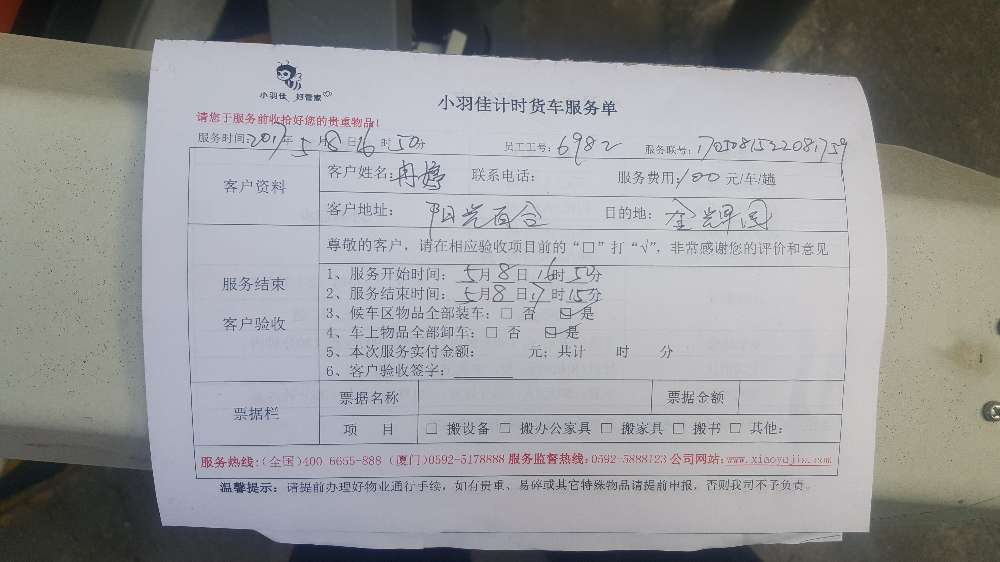 小羽佳 好管家
小羽佳计时货车服务单
请您于服务前收拾好您的贵重物品!
服务时间:2017年5月8日16时50分 员工工号:6982 服务联号:1705081522081759
客户资料
客户姓名:冉婷 联系电话: 服务费用:100元/车/趟
客户地址: 阳光百合 目的地: 金辉园
尊敬的客户，请在相应验收项目前的“□”打“√”，非常感谢您的评价和意见
服务结束
客户验收
1、服务开始时间: 5月8日16时50分
2、服务结束时间: 5月8日17时15分
3、候车区物品全部装车: □ 否 □ 是
4、车上物品全部卸车: □ 否 □ 是
5、本次服务实付金额: 元; 共计 时 分
6、客户验收签字:
票据栏
票据名称 票据金额
项 目 □ 搬设备 □ 搬办公家具 □ 搬家具 □ 搬书 □ 其他:
服务热线:(全国)400 6655-888 (厦门)0592-5178888 服务监督热线:0592-5888123 公司网站:www.xiaoyujia.com
温馨提示: 请提前办理好物业通行手续，如有贵重、易碎或其它特殊物品请提前申报，否则我司不予负责。